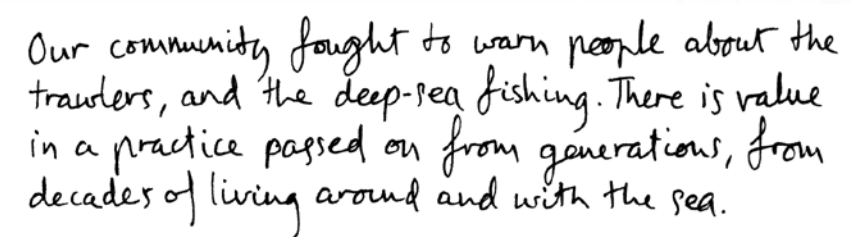 Our community fought to warn people about the
trawlers, and the deep-sea fishing. There is value
in a practice passed on from generations, from
decades of living around and with the sea.